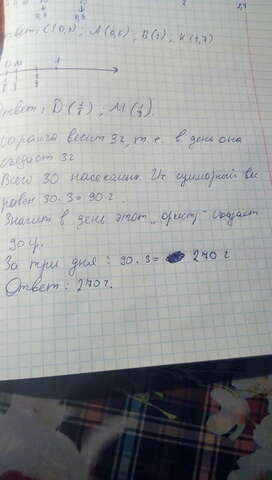 твет: С(0,1), А(0,6), В(1), К(1,7)
0
твет: D(1/5); М(1/2).
саранча весит 3г, т. е. в день она
съедает 3г
Всего 30 насекомых. Их суммарный вес
равен 30·3=90 г.
Значит в день этот „оркестр" съедает
90 гр.
За три дня: 90·3= 270 г
Ответ: 270г.